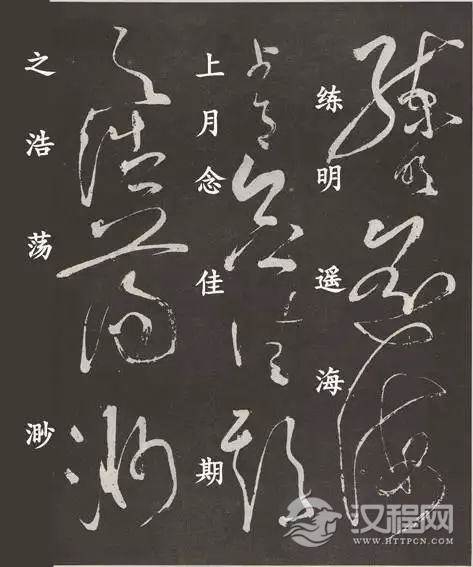 练明遥海
上月念佳期
之浩荡渺
汉程网
WWW.HTTPCN.COM